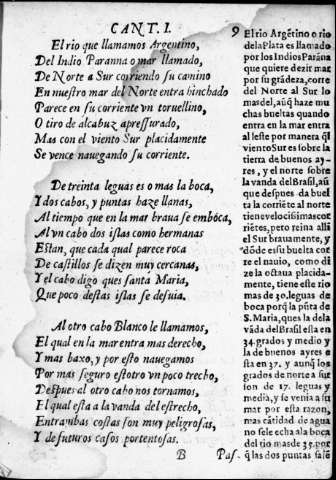 CANT. I.
9
El rio que llamamos Argentino,
Del Indio Paranna o mar llamado,
De Norte a Sur corriendo su camino
En nuestro mar del Norte entra hinchado
Parece en su corriente vn toruellino,
O tiro de alcabuz apressurado,
Mas con el viento Sur placidamente
Se vence nauegando su corriente.
De treinta leguas es o mas la boca,
Y dos cabos, y puntas haze llanas,
Al tiempo que en la mar braua se emboca,
Al vn cabo dos islas como hermanas
Estan, que cada qual parece roca
De castillos se dizen muy cercanas,
Y el cabo digo ques santa Maria,
Que poco destas islas se desuia.
Al otro cabo Blanco le llamamos,
El qual en la mar entra mas derecho,
Y mas baxo, y por esto nauegamos
Por mas seguro estotro vn poco trecho,
Despues al otro cabo nos tornamos,
El qual esta a la vanda del estrecho,
Entrambas costas son muy peligrosas,
Y de futuros casos portentosas.
B Pas-
El rio Argētino o rio
de la Plata es llamado
por los Indios Parana
que quiere dezir mar
por su grādeza, corte
del Norte al Sur lo
mas del, aūq̄ haze mu
chas bueltas quando
entra en la mar entra
al leste por manera q̄
viento Sur es sobre la
tierra de buenos ay-
res, y el norte sobre
la vanda del Brasil, aū
que despues da buel
ta la corriēte al norte
tiene velocisimas cor
riētes, pero reina alli
el Sur brauamente, y
dōde es su buelta cor
re el nauio, como di
ze la octaua placida-
mente, tiene este rio
mas de 30. leguas de
boca porq̄ la pūta de
S. Maria, ques la de la
vāda del Brasil esta en
34. grados y medio y
la de buenos ayres e
sta en 37. y aunq̄ los
grados de norte a sur
son de 17. leguas y
media, y se venia a su
mar por esta razon,
mas cātidad de agua
no se le echa a la boca
del rio mas de 35. por
q̄ las dos puntas salē